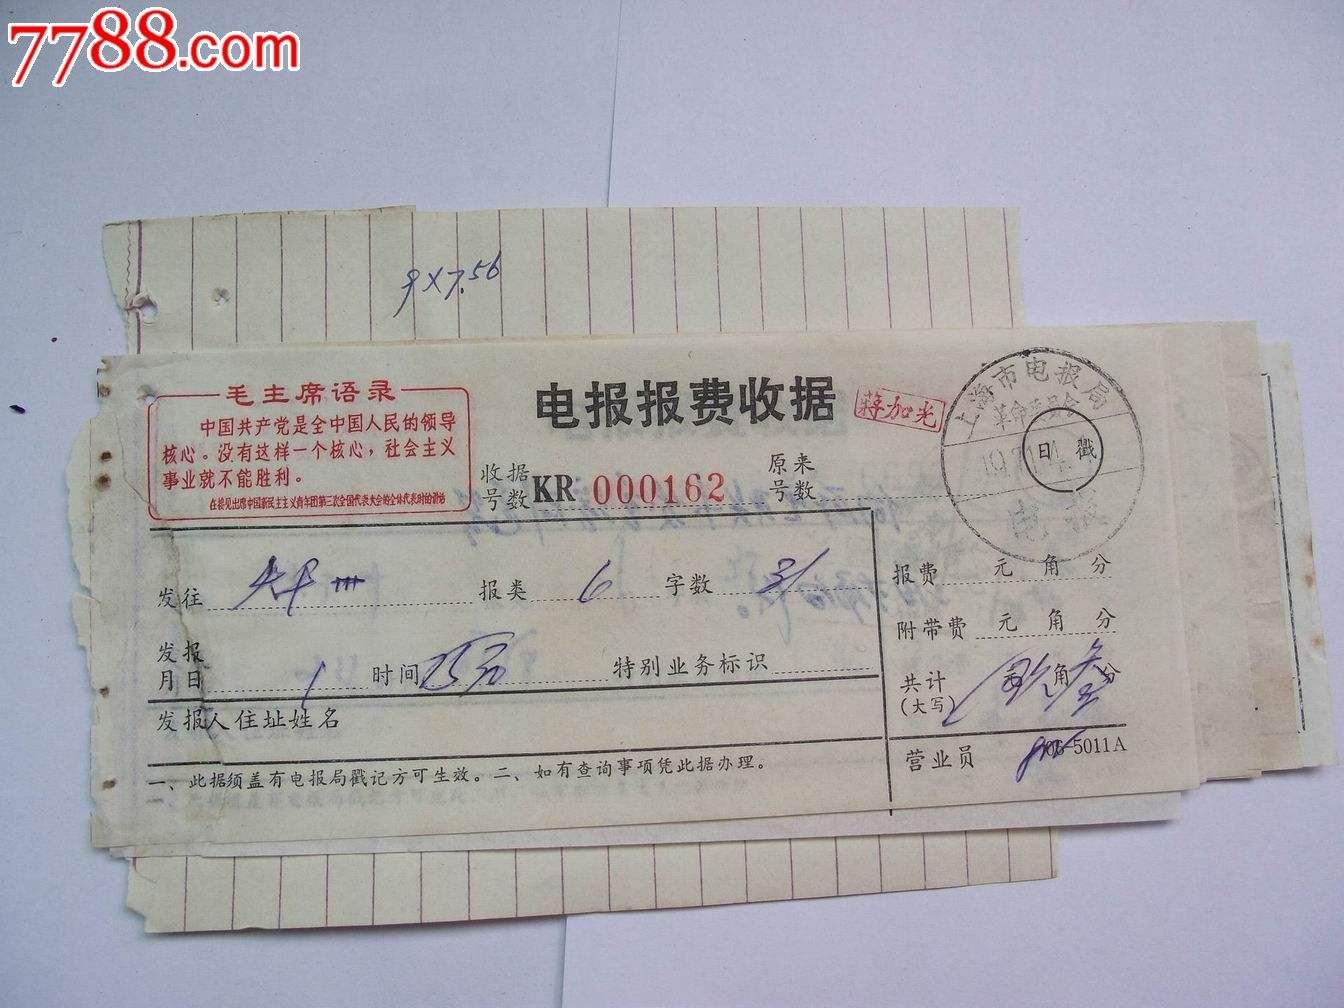 7788.com
9×7.56
毛主席语录
中国共产党是全中国人民的领导
核心。没有这样一个核心，社会主义
事业就不能胜利。
在接见出席中国新民主主义青年团第三次全国代表大会的全体代表时的讲话
电报报费收据
蒋加光
上海市电报局
革命委员会
日戳
收据号数 KR 000162
原来号数
发往 报类 6 字数 31
报费 元 角 分
附带费 元 角 分
发报月日 1 时间 特别业务标识
共计(大写) 角 分
发报人住址姓名
营业员
06-5011A
一、此据须盖有电报局戳记方可生效。二、如有查询事项凭此据办理。